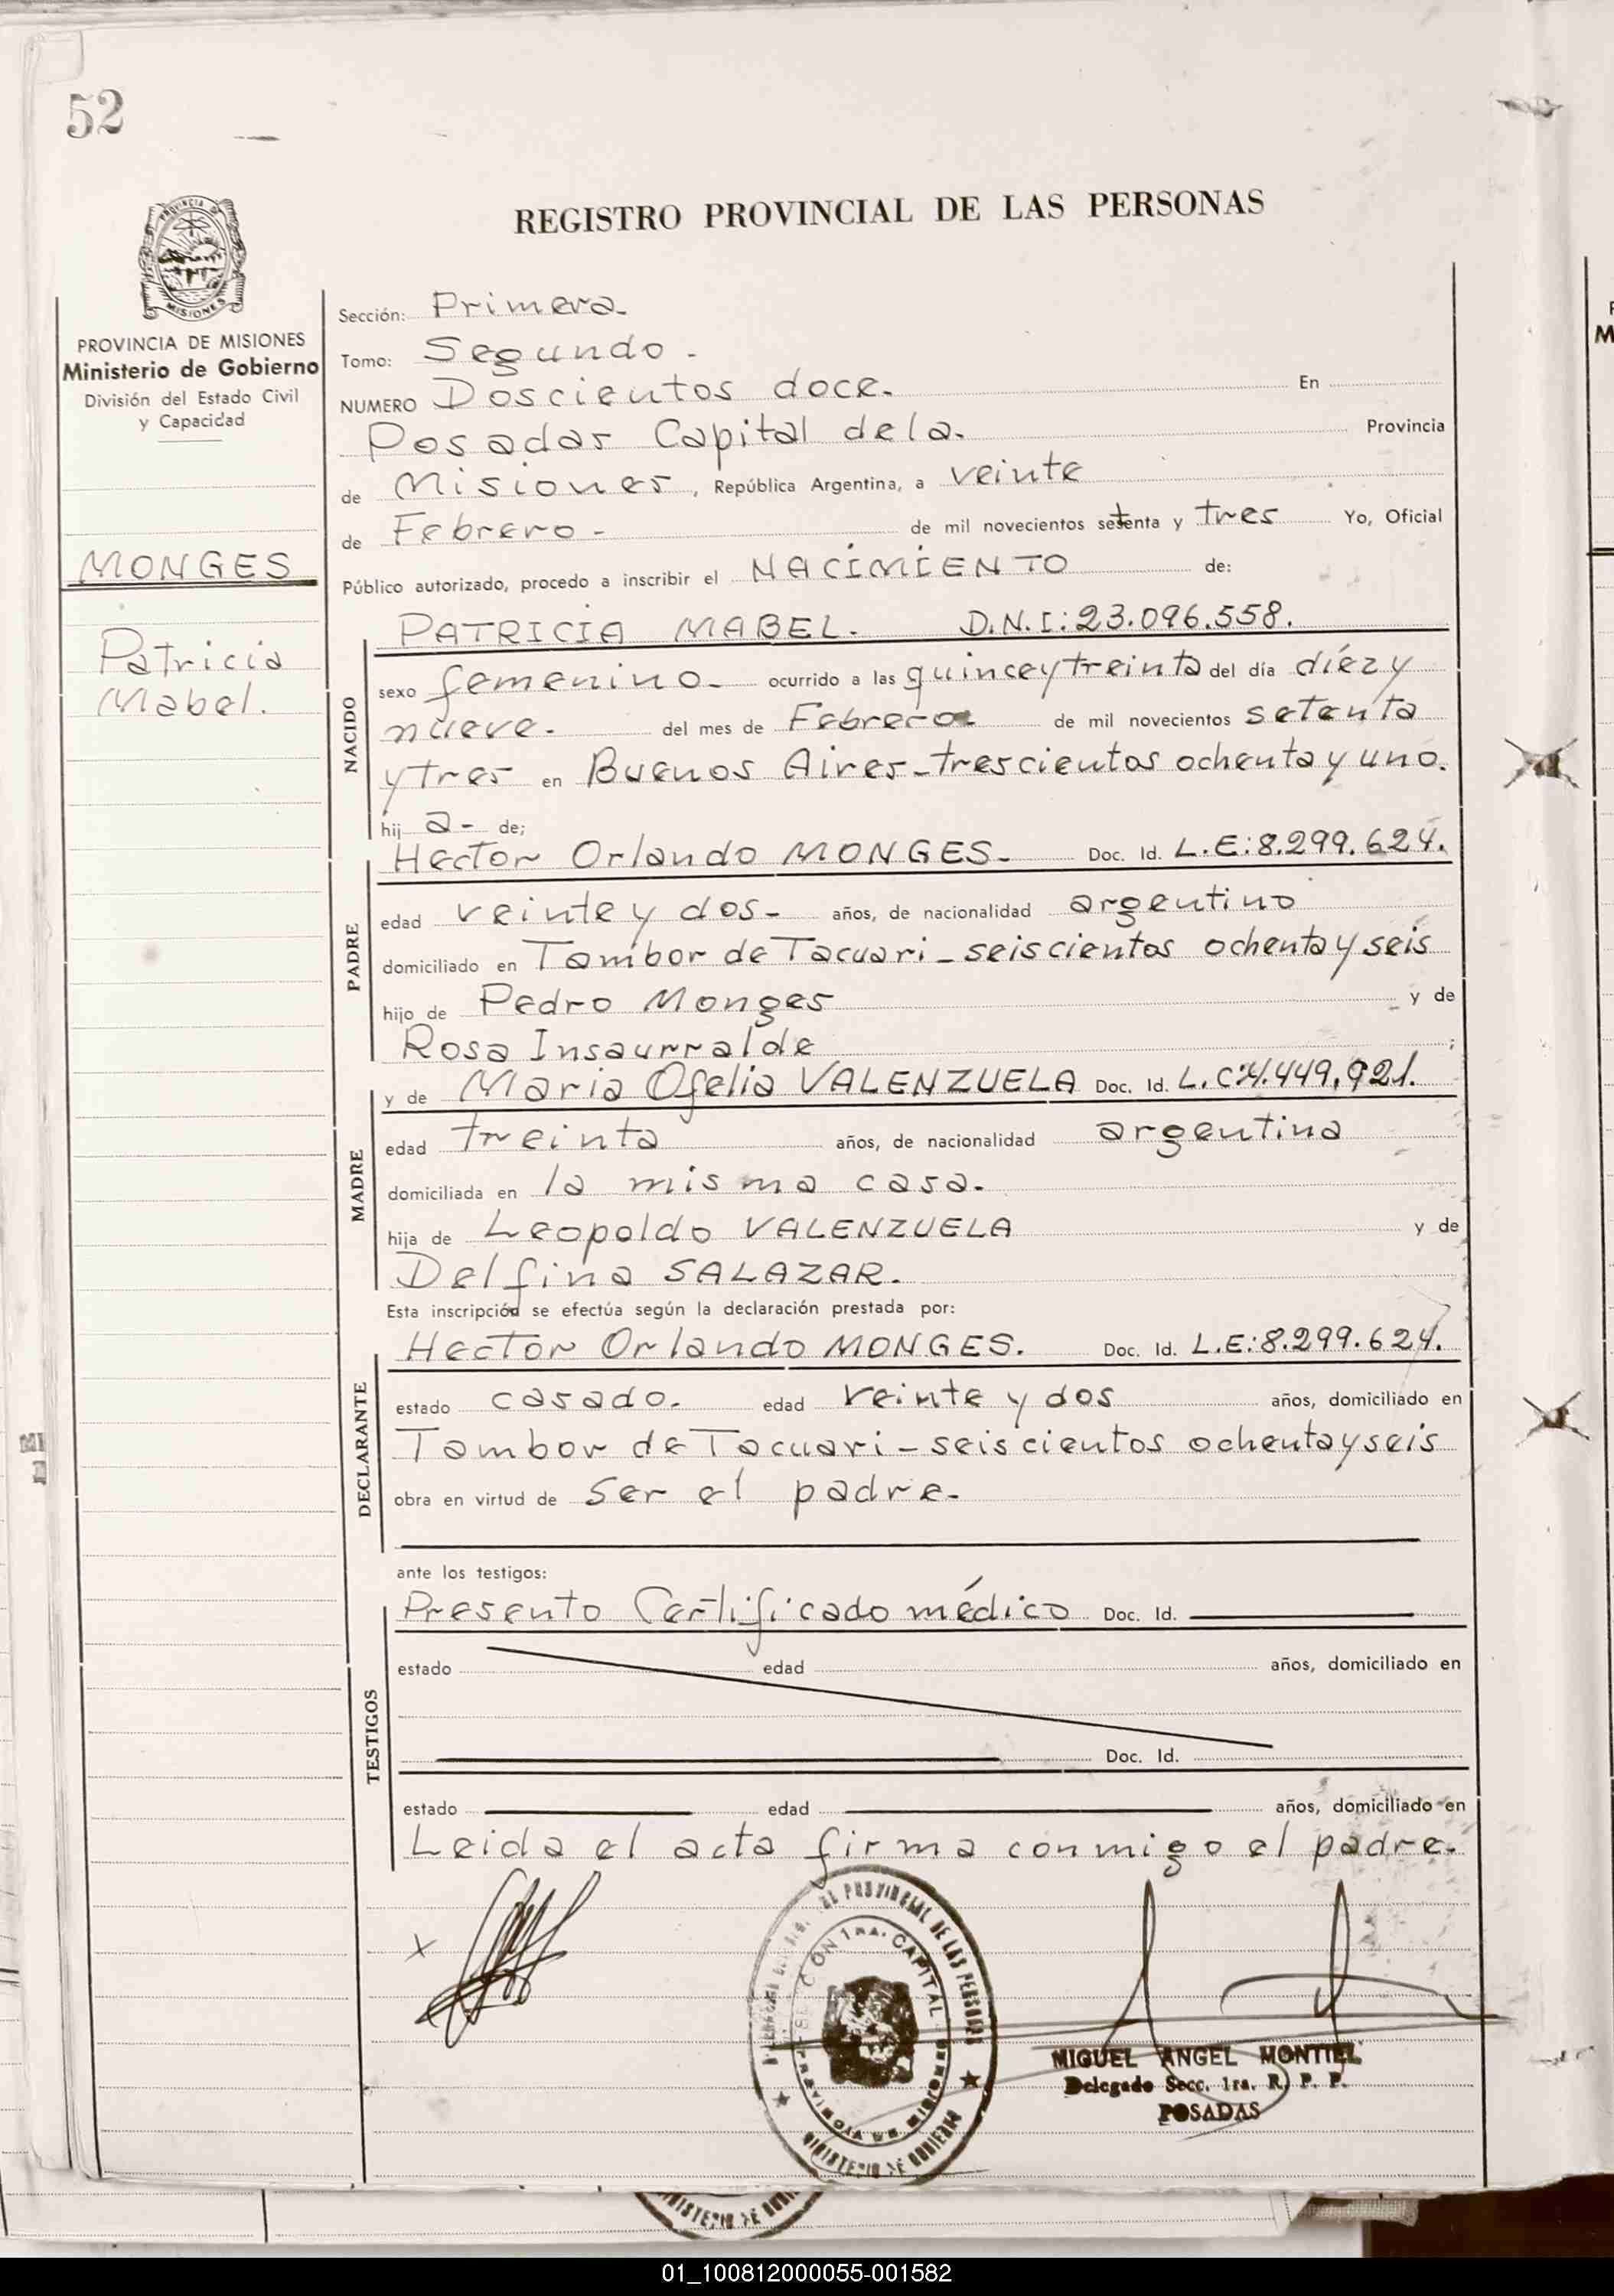 52
REGISTRO PROVINCIAL DE LAS PERSONAS
PROVINCIA DE MISIONES
Ministerio de Gobierno
División del Estado Civil
y Capacidad
MONGES
Patricia
Mabel.
Sección: Primera.
Tomo: Segundo.
NUMERO Doscientos doce. En
Posadas Capital de la. Provincia
de Misiones, República Argentina, a veinte
de Febrero - de mil novecientos setenta y tres Yo, Oficial
Público autorizado, procedo a inscribir el NACIMIENTO de:
NACIDO
PATRICIA MABEL. D.N.I: 23.096.558.
sexo femenino. ocurrido a las quince y treinta del día diez y
nueve. del mes de Febrero de mil novecientos setenta
y tres en Buenos Aires - trescientos ochenta y uno.
hij a- de;
PADRE
Hector Orlando MONGES. Doc. Id. L.E: 8.299.624.
edad veinte y dos- años, de nacionalidad argentino
domiciliado en Tambor de Tacuari - seiscientos ochenta y seis
hijo de Pedro Monges y de
Rosa Insaurralde ;
MADRE
y de Maria Ofelia VALENZUELA Doc. Id. L.C: 4.449,921.
edad treinta años, de nacionalidad argentina
domiciliada en la misma casa.
hija de Leopoldo VALENZUELA y de
Delfina SALAZAR.
Esta inscripción se efectúa según la declaración prestada por:
DECLARANTE
Hector Orlando MONGES. Doc. Id. L.E: 8.299.624.
estado casado. edad veinte y dos años, domiciliado en
Tambor de Tacuari - seiscientos ochenta y seis
obra en virtud de ser el padre.
ante los testigos:
TESTIGOS
Presento Certificado médico Doc. Id.
estado edad años, domiciliado en
Doc. Id.
estado edad años, domiciliado en
Leida el acta firma conmigo el padre.
PROVINCIAL DE LAS PERSONAS
1RA. CAPITAL
PROVINCIA DE MISIONES
MINISTERIO DE GOBIERNO
MIGUEL ANGEL MONTIEL
Delegado Secc. 1ra. R. P. P.
POSADAS
01_100812000055-001582